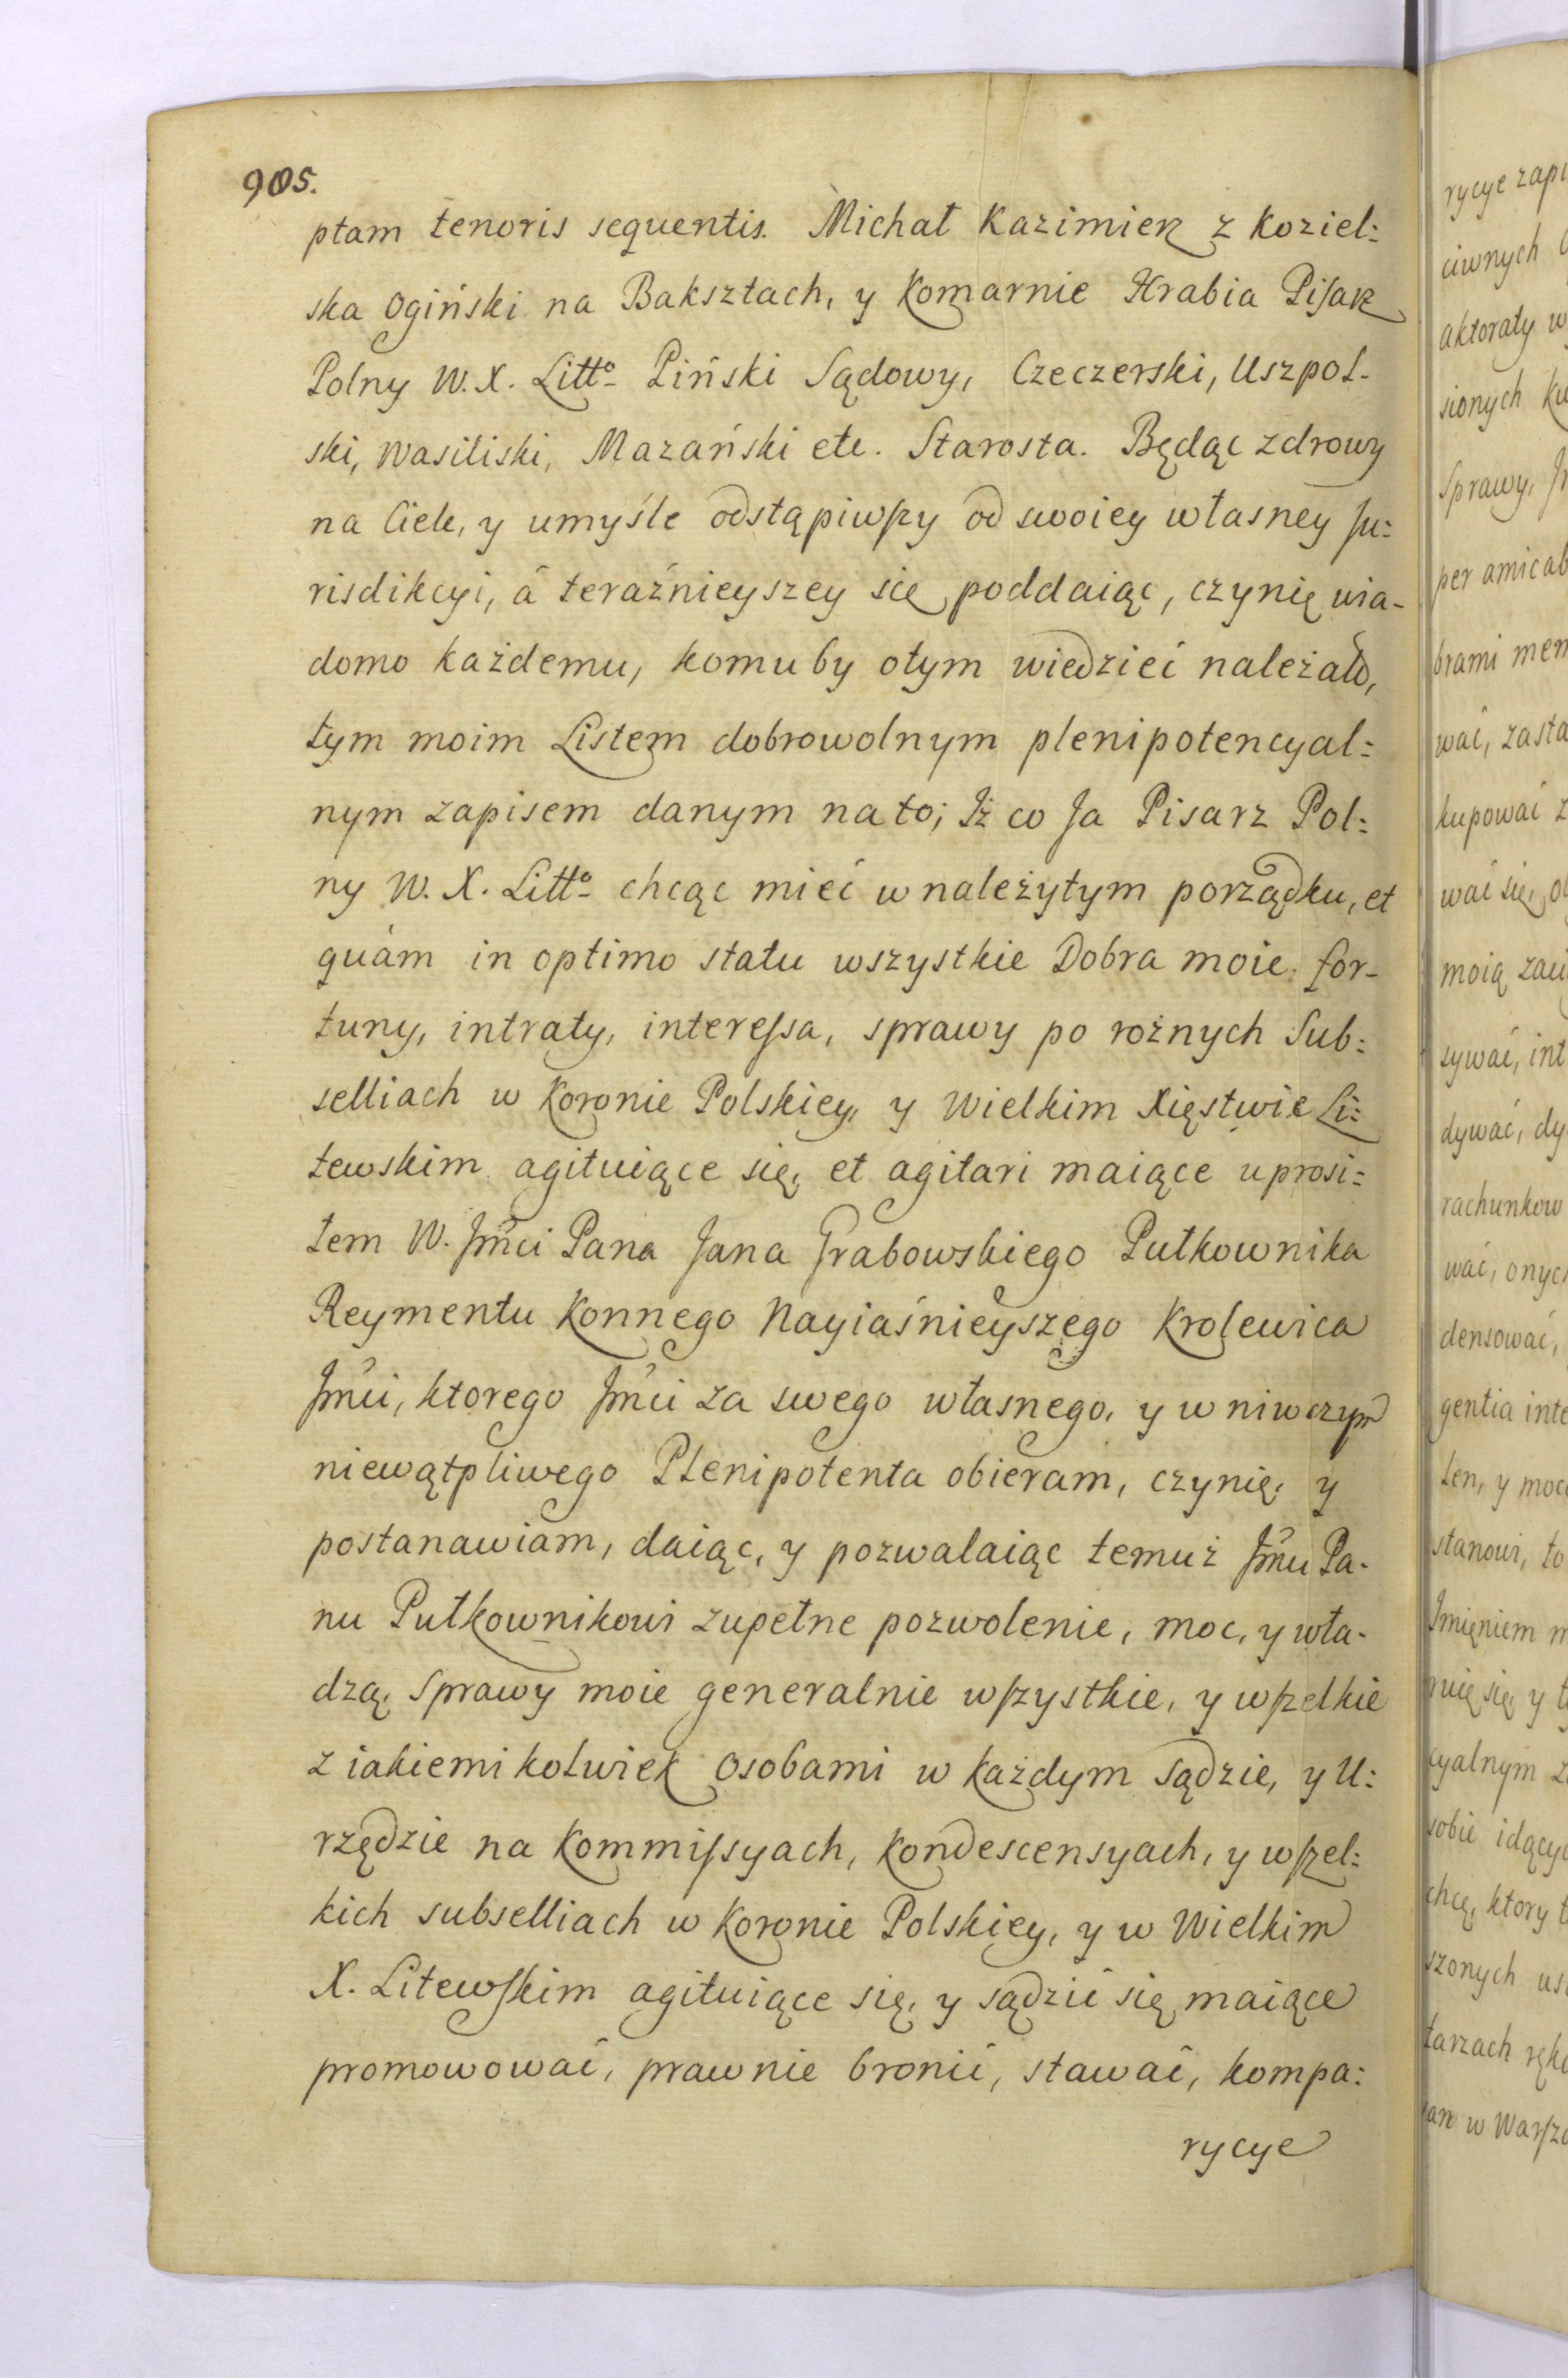 905.
ptam tenoris sequentis. Michał Kazimierz z Koziel:
ska Ogiński na Baksztach, y Komarnie Hrabia Pisarz
Polny W. X. Litto Piński Sądowy, Czeczerski, Uszpol-
ski, Wasiliski, Mazański etc. Starosta. Będąc zdrowy
na Ciele, y umyśle odstąpiwszy od swoiey własney Ju:
risdikcyi, á teraźnieyszey się poddaiąc, czynię wia-
domo każdemu, komu by otym wiedzieć należało,
tym moim Listem dobrowolnym plenipotencyal:
nym zapisem danym na to; Iż co Ja Pisarz Pol:
ny W. X. Litto chcąc mieć w należytym porządku, et
quàm in optimo statu wszystkie Dobra moie for-
tuny, intraty, interessa, sprawy po rożnych Sub:
selliach w Koronie Polskiey, y Wielkim Xięstwie Li:
tewskim agituiące się, et agitari maiące uprosi:
łem W. Jmci Pana Jana Grabowskiego Pułkownika
Reymentu Konnego Nayiaśnieyszego Krolewica
Jmci, ktorego Jmci za swego własnego, y w niwczym
niewątpliwego Plenipotenta obieram, czynię, y
postanawiam, daiąc, y pozwalaiąc temuż Jmu Pa-
nu Pułkownikowi zupełne pozwolenie, moc, y wła-
dzą, Sprawy moie generalnie wszystkie, y wszelkie
z iakiemi kolwiek osobami w każdym sądzie, y U:
rzędzie na Kommissyach, Kondescensyach, y wszel:
kich subselliach w Koronie Polskiey, y w Wielkim
X. Litewskim agituiące się, y sądzić się maiące
promowować, prawnie bronić, stawać, kompa:
rycye
rycye
ciwnych
aktoraty
sionych
Sprawy,
per
brami
wać,
kupować
wać się,
moią
sywać,
dywać,
rachunkow
wać,
densować,
gentia
ten, y
stanowi, to
Imieniem
się y
cyalnym
sobie
chcę, ktory
szonych
tarzach
w